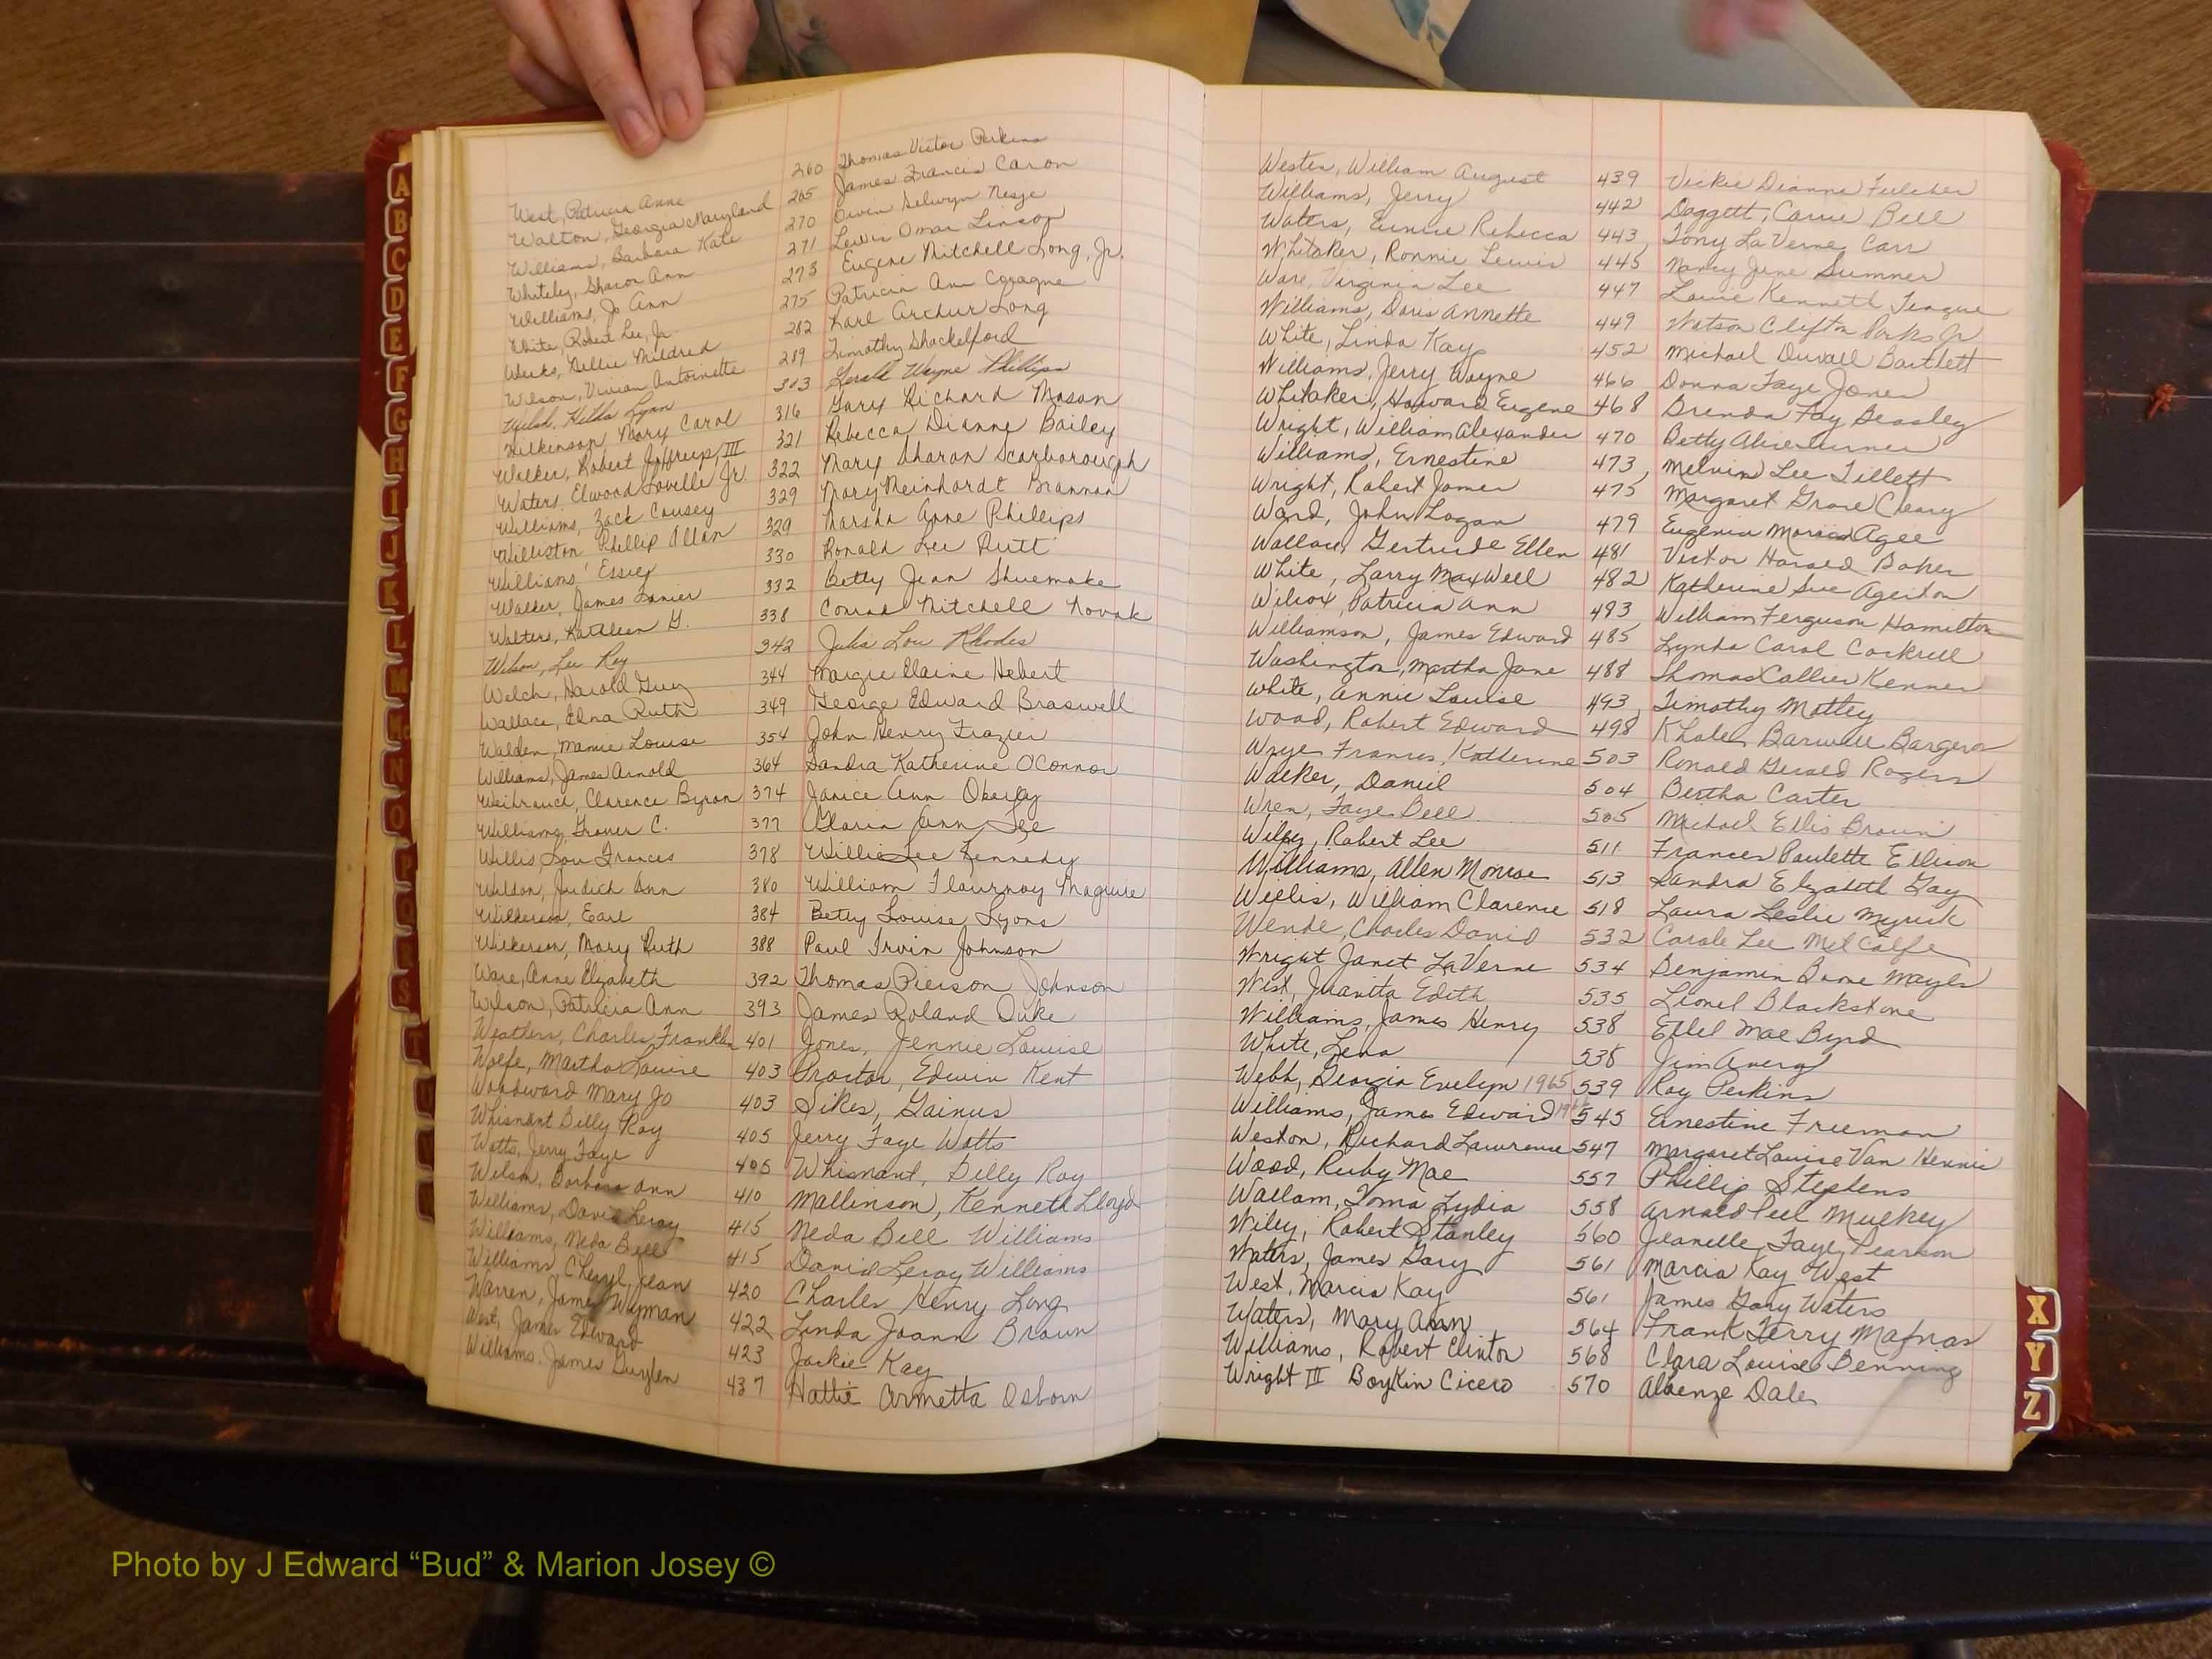 West, Patricia Anne 260 Thomas Victor Perkins
Walton, Georgia Maryland 265 James Francis Caron
Williams, Barbara Kate 270 Orvin Selwyn
Whiteley, Sharon Ann 271 Lewis Omar
Williams, Jo Ann 273 Eugene Mitchell Long, Jr.
White, Robert Lee, Jr. 275 Patricia Ann
Weeks, Nellie Mildred 282 Karl Archur Long
Wilson, Vivian Antoinette 289 Timothy Shackelford
Welsh, Lynn 303 Gerald Wayne Phillips
Wilkinson, Mary Carol 316 Gary Richard Mason
Walker, Robert III 321 Rebecca Dianne Bailey
Waters, Elwood Jr. 322 Mary Sharon Scarborough
Williams, Zack Causey 329 Mary Meinhardt Brannan
Williston Phillip Allan 329 Marsha Anne Phillips
Williams, Essie 330 Ronald Lee
Walker, James Lanier 332 Betty Jean Shuemake
Walters, Kathleen G. 338 Conrad Mitchell Novak
Wilson, Lee Roy 342 Julia Lou Rhodes
Welch, Harold Guy 344 Margie Elaine Hebert
Wallace, Edna Ruth 349 George Edward Braswell
Walden, Mamie Louise 354 John Henry Frazier
Williams, James Arnold 364 Sandra Katherine O'Connor
Clarence Byron 374 Janice Ann
Williams, Grover C. 377 Gloria Ann Lee
Willis, Lou Frances 378 Willie Lee Kennedy
Judith Ann 380 William Flournoy Maguire
Wilkerson, Earl 384 Betty Louise Lyons
Wilkerson, Mary Ruth 388 Paul Irvin Johnson
Ware, Anne Elizabeth 392 Thomas Pierson Johnson
Wilson, Patricia Ann 393 James Roland Duke
Weathers, Charles Franklin 401 Jones, Jennie Louise
Wolfe, Martha Louise 403 Proctor, Edwin Kent
Woodward Mary Jo 403 Sikes, Gainus
Whisnant Billy Ray 405 Jerry Faye Watts
Watts, Jerry Faye 405 Whisnant, Billy Ray
Wilson, Barbara Ann 410 Mallinson, Kenneth Lloyd
Williams, David Leroy 415 Neda Bell Williams
Williams, Neda Bell 415 David Leroy Williams
Williams, Cheryl Jean 420 Charles Henry Long
Warren, James Wyman 422 Linda Joann Braun
West, James Edward 423 Jackie Kay
Williams, James 437 Hattie Armetta Osborn
William August 439 Vickie Dianne Fulcher
Williams, Jerry 442 Doggett, Carrie Bell
Waters, Eunice Rebecca 443 Tony La Verne Carr
Whitaker, Ronnie Lewis 445 Nancy Jene Sumner
Ware, Virginia Lee 447 Louie Kenneth Teague
Williams, Doris Annette 449 Watson Clifton Parks Jr
White, Linda Kay 452 Michael Duvall Bartlett
Williams, Jerry Wayne 466 Donna Faye Jones
Whitaker, Howard Eugene 468 Brenda Fay Beasley
Wright, William Alexander 470 Betty Alice Turner
Williams, Ernestine 473 Melvin Lee Tillett
Wright, Robert James 475 Margaret Grace Cleary
Ward, John Logan 479 Eugenia Agee
Wallace, Gertrude Ellen 481 Victor Harold Baker
White, Larry Maxwell 482 Katherine Sue Agerton
Wilcox, Patricia Ann 483 William Ferguson Hamilton
Williamson, James Edward 485 Lynda Carol Cockrell
Washington, Martha Jane 488 Thomas Collier Kenner
White, Annie Louise 493 Timothy Motley
Wood, Robert Edward 498 Barwell
Frances Katherine 503 Ronald Gerald Rogers
Walker, Daniel 504 Bertha Carter
Wren, Faye Bell 505 Michael Ellis Brown
Wiley, Robert Lee 511 Frances Paulette Ellison
Williams, Allen Monroe 513 Sandra Elizabeth Gay
Willis, William Clarence 518 Laura Leslie Myrick
Wende, Charles David 532 Carole Lee Metcalfe
Wright Janet LaVerne 534 Benjamin Mayes
West, Juanita Edith 535 Lionel Blackstone
Williams, James Henry 538 Ethel Mae Byrd
White, Lena 538 Jim Avery
Webb, Georgia Evelyn 1965 539 Roy Perkins
Williams, James Edward 545 Ernestine Freeman
Weston, Richard Lawrence 547 Margaret Louise Van Hennie
Wood, Ruby Mae 557 Phillip Stephens
Lydia 558 Arnold Peel Mulkey
Wiley, Robert Stanley 560 Jeanelle Faye Pearson
Waters, James Gary 561 Marcia Kay West
West, Marcia Kay 561 James Gary Waters
Waters, Mary Ann 564 Frank Terry
Williams, Robert Clinton 568 Clara Louise Benning
Wright III Boykin Cicero 570 Albenze Dales
A
B
C
D
E
F
G
H
I
J
K
L
M
Mc
N
O
P
Q
R
S
T
U
X
Y
Z
Photo by J Edward “Bud” & Marion Josey ©